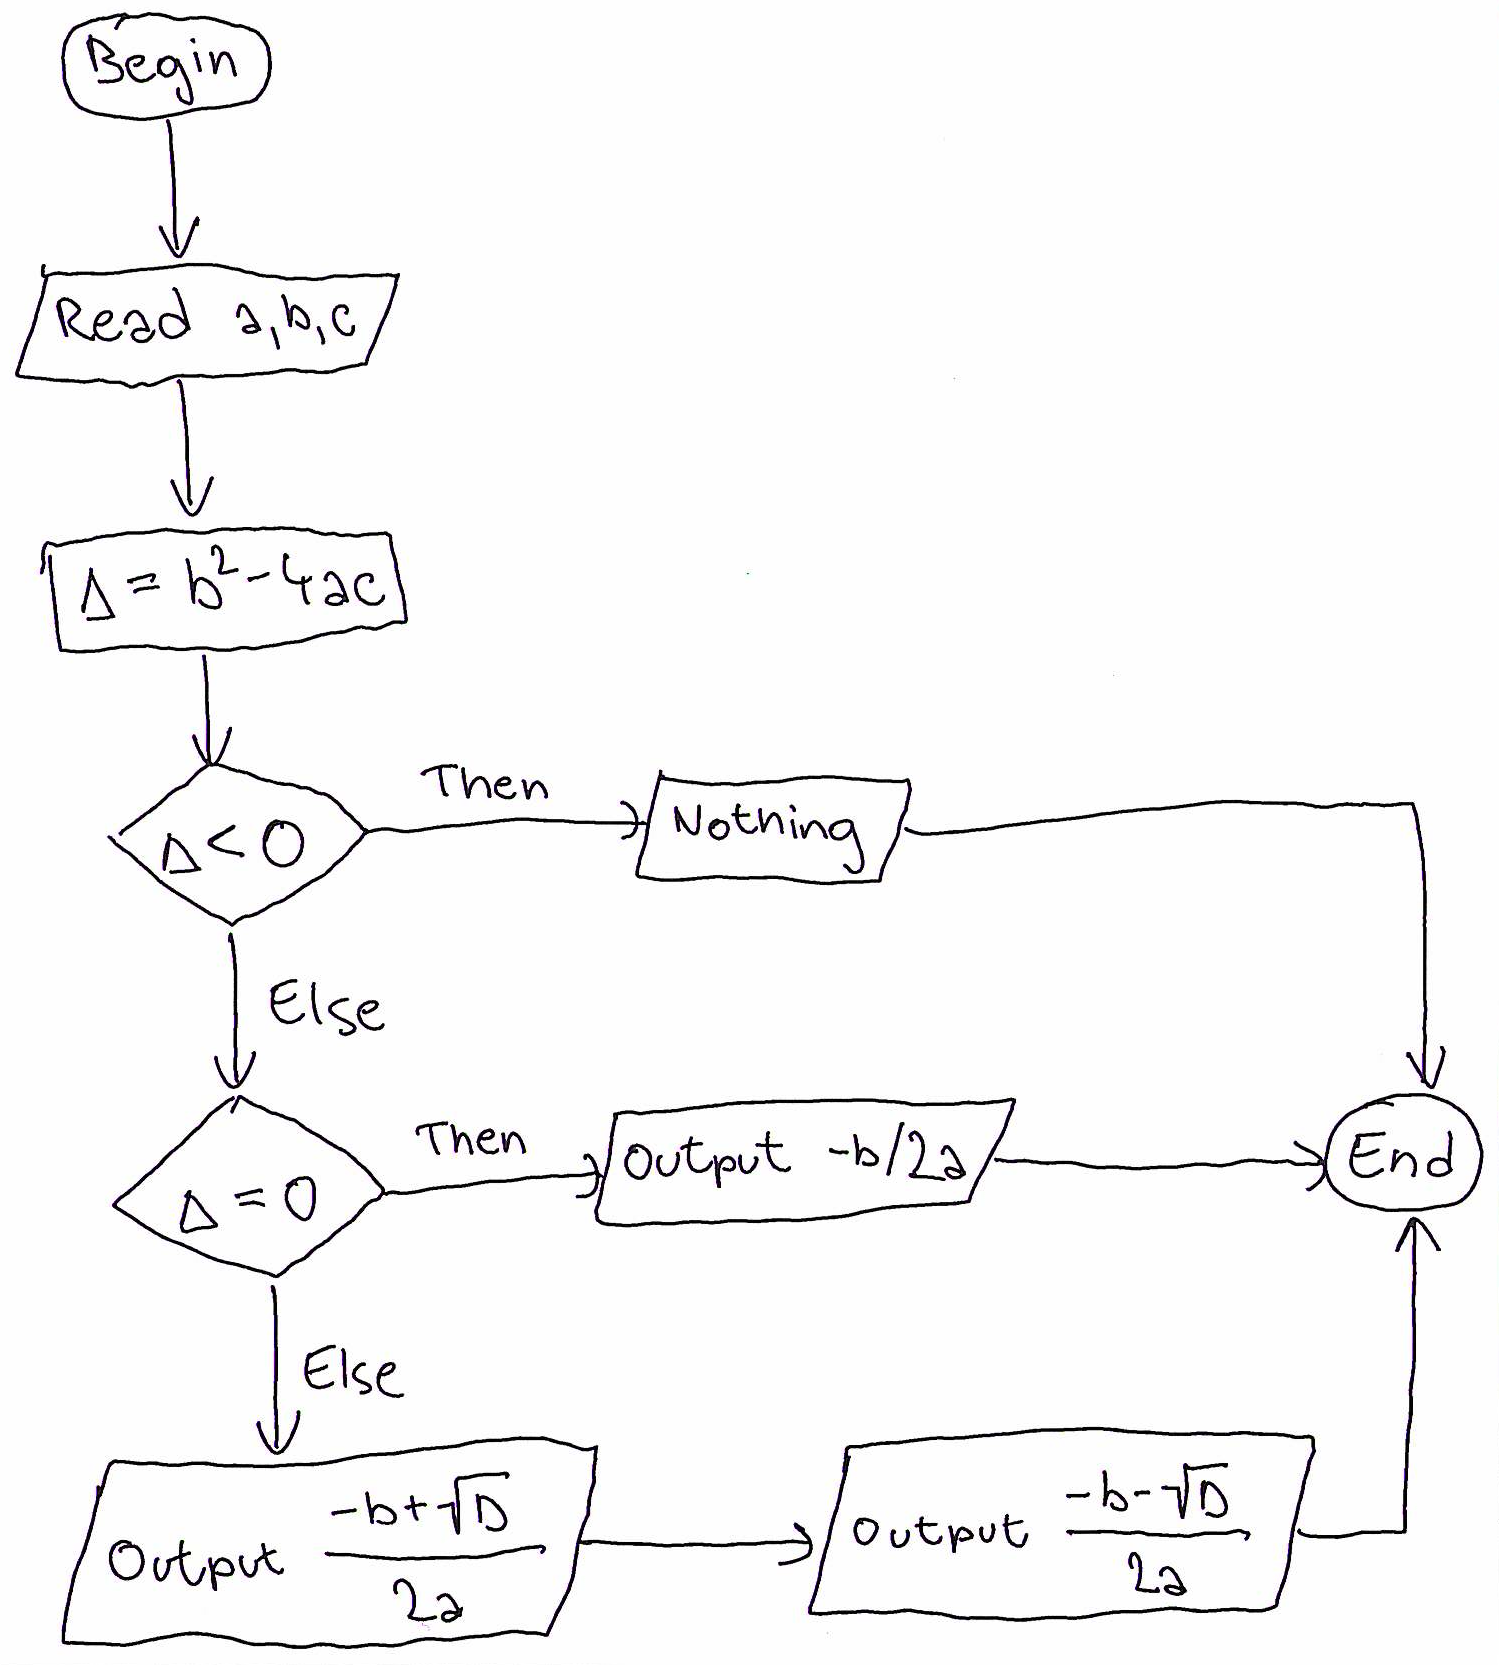 Begin
Read a,b,c
Δ = b²-4ac
Δ < 0
Then
Nothing
Else
Δ = 0
Then
Output -b/2a
End
Else
Output (-b+√D)/2a
Output (-b-√D)/2a